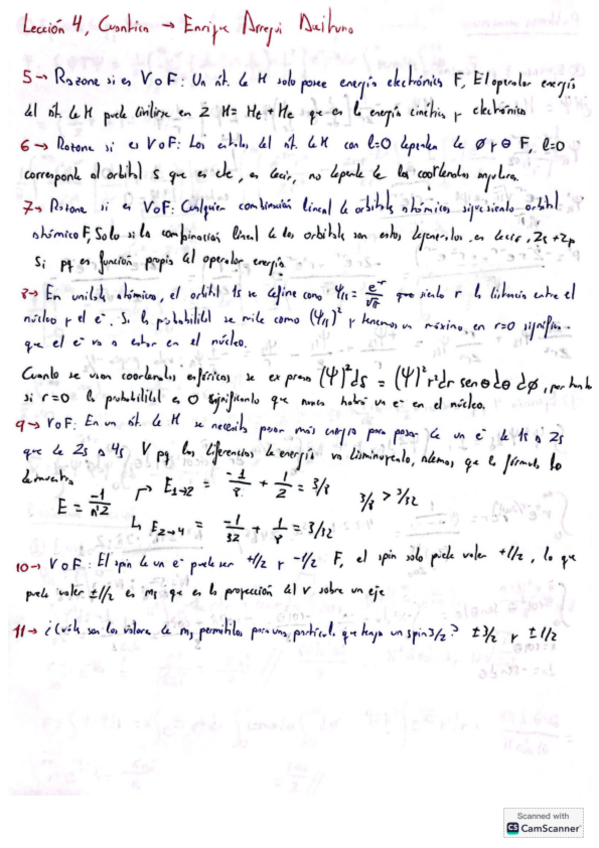 Lección 4, Cuántica → Enrique Arregui
5 → Razone si es V o F: Un át. de H solo posee energía electrónica F, El operador energía
del át. de H puede dividirse en 2 H = Ht + He que es la energía cinética y electrónica
6 → Razone si es V o F: Los orbitales del át. de H con l=0 dependen de ∅ y θ F, l=0
corresponde al orbital s que es, es decir, no depende de las coordenadas angulares.
7 → Razone si es V o F: Cualquier combinación lineal de orbitales atómicos sigue siendo orbital
atómico F, Solo si la combinación lineal de los orbitales son estos degenerados, es decir, 2s + 2p
Si pq es función propia del operador energía.
8 → En unidades atómicas, el orbital 1s se define como Ψ1s = e^-r/√π que siendo r la distancia entre el
núcleo y el e⁻. Si la probabilidad se mide como (Ψ1s)² y tenemos un máximo, en r=0 significa
que el e⁻ va a estar en el núcleo.
Cuando se usan coordenadas esféricas se expresa (Ψ)² ds = (Ψ)² r² dr sen θ dθ d∅, por tanto
si r=0 la probabilidad es 0 significando que nunca habrá un e⁻ en el núcleo.
9 → V o F: En un át. de H se necesita poner más energía para pasar de un e⁻ de 1s a 2s
que de 2s a 4s V pq las diferencias de energía va disminuyendo, además que la fórmula lo
demuestra
E = -1/n²2 → E1→2 = -1/8 + 1/2 = 3/8 3/8 > 3/32
↳ E2→4 = -1/32 + 1/8 = 3/32
10 → V o F: El spin de un e⁻ puede ser +1/2 y -1/2 F, el spin solo puede valer +1/2, lo que
puede valer ±1/2 es ms que es la proyección del v sobre un eje
11 → ¿Cuáles son los valores de ms permitidos para una partícula que tenga un spin 3/2? ±3/2 y ±1/2
Scanned with
CS CamScanner